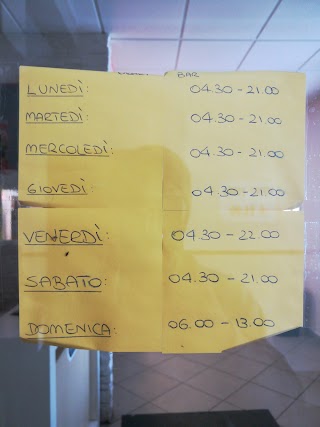 BAR
LUNEDÌ: 04.30 - 21.00
MARTEDÌ: 04.30 - 21.00
MERCOLEDÌ: 04.30 - 21.00
GIOVEDÌ: 04.30 - 21.00
VENERDÌ: 04.30 - 22.00
SABATO: 04.30 - 21.00
DOMENICA: 06.00 - 13.00